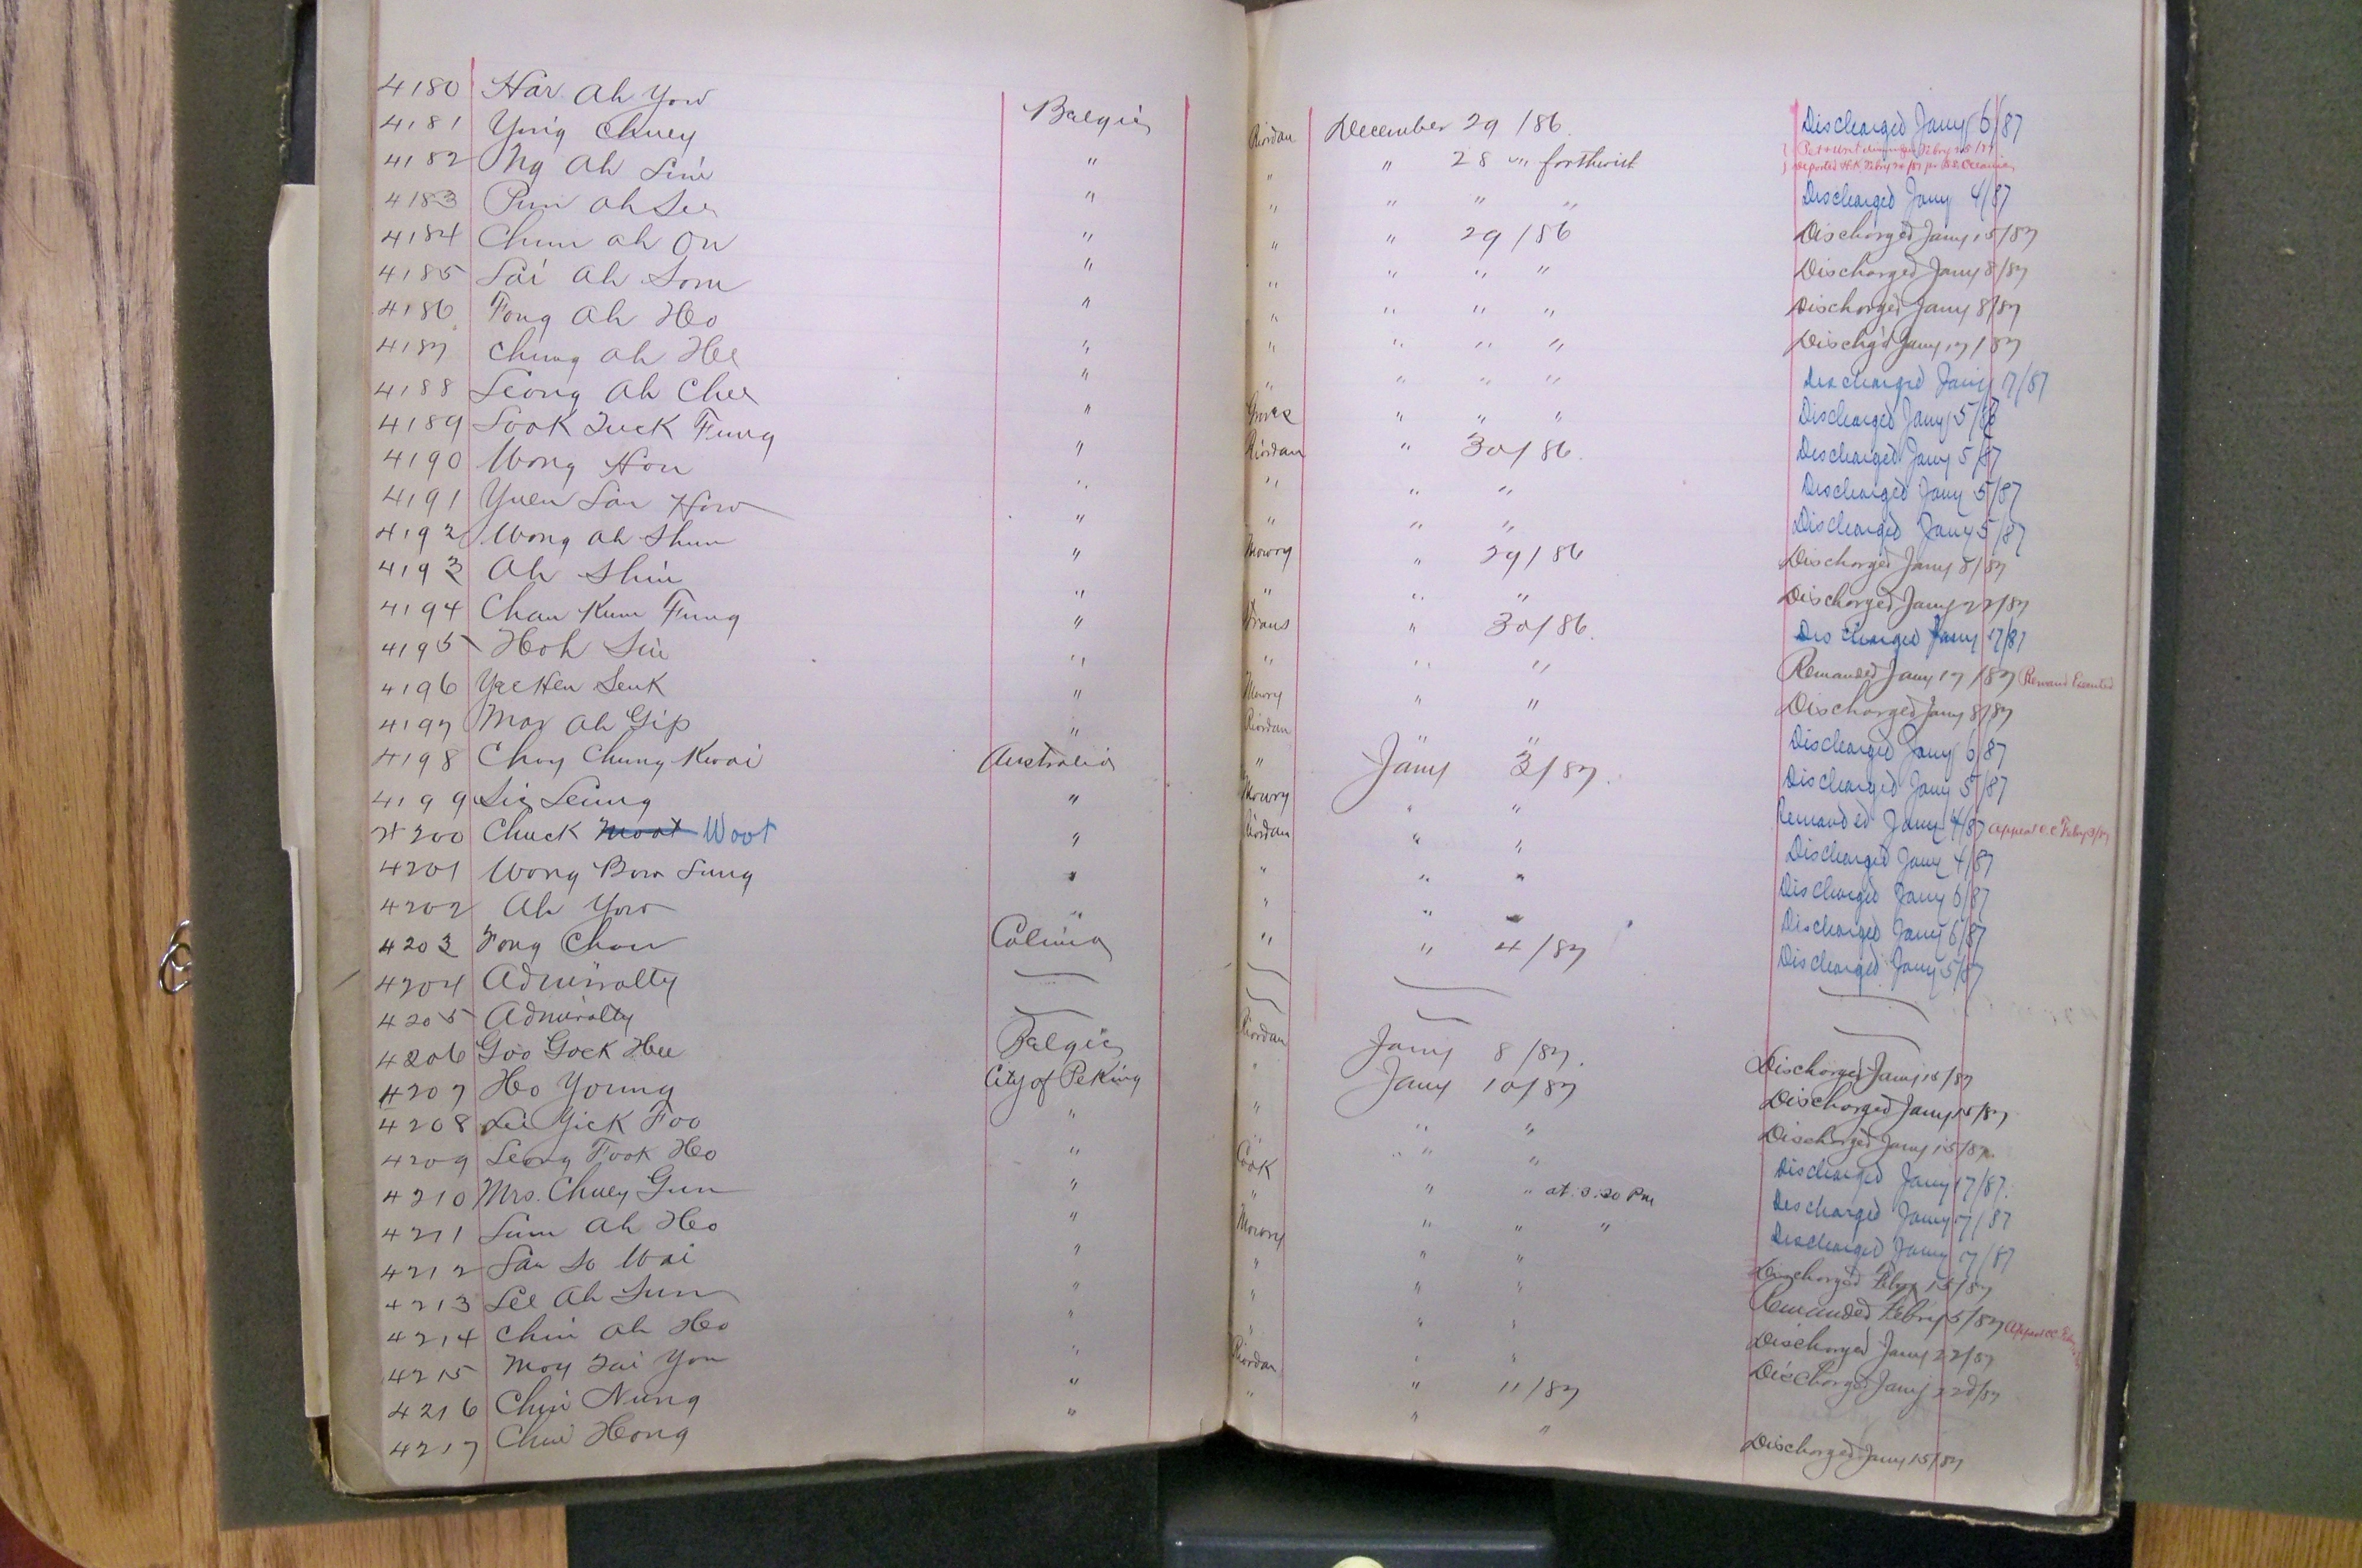 4180 Har Ah Yow Belgic Riordan December 29 /86. Discharged Jany 6/87
4181 Yung Chuey " " " 28 " forthwith Deported H.K. Febry per S.S. Oceanic
4182 Ng Ah Sini " " " " " Discharged Jany 4/87
4183 Pun Ah See " " " 29 /86 Discharged Jany 15/87
4184 Chun Ah On " " " " " Discharged Jany 8/87
4185 Lai Ah Som " " " " " Discharged Jany 8/87
4186 Fong Ah Ho " " " " " Dischgd Jany 17/87
4187 Chung Ah Hee " " " " " Discharged Jany 17/87
4188 Leong Ah Chee " " " " Discharged Jany 5/86
4189 Look Tuck Fung " Riordan " 30/86. Discharged Jany 5/87
4190 Wong Hon " " " " Discharged Jany 5/87
4191 Yuen San How " " " " Discharged Jany 5/87
4192 Wong Ah Shun " Mowry " 29/86 Discharged Jany 8/87
4193 Ah Shin " " " " Discharged Jany 22/87
4194 Chan Kum Fung " " 30/86. Discharged Jany 17/87
4195 Hoh Sin " " " " Remanded Jany 17/87 Remand Executed
4196 Yee Hen Senk " Mowry " " Discharged Jany 8/87
4197 Mar Ah Gip " Riordan " " Discharged Jany 6/87
4198 Choy Chung Kwai Australia " Jany 3/87. Discharged Jany 5/87
4199 Sig Seung " Mowry " " Remanded Jany 4/87 Appeal C.C. Febry 3/87
4200 Chuck Moot Woot " Riordan " " Discharged Jany 4/87
4201 Wong Bow Sung " " " " Discharged Jany 6/87
4202 Ah Yow " " " " Discharged Jany 6/87
4203 Fong Chow Colima " " 4/87 Discharged Jany 5/87
4204 Admiralty
4205 Admiralty
4206 Goo Gock Hee Belgic Riordan Jany 8/87. Discharged Jany 15/87
4207 Ho Young City of Peking " Jany 10/87 Discharged Jany 15/87
4208 Lee Yick Foo " " " " Discharged Jany 15/87
4209 Leong Fook Ho " " " " Discharged Jany 17/87.
4210 Mrs. Chuey Gun " Cook " " at 3.30 Pm Discharged Jany 17/87
4211 Sum Ah Ho " " " " " Discharged Jany 17/87
4212 San So Wai " Mowry " " Discharged Febry 15/87
4213 Lee Ah Sun " " " " Remanded Febry 5/87 Appeal C.C.
4214 Chin Ah Ho " " " " Discharged Jany 22/87
4215 Moy Tai You " " " " Discharged Jany 22d/87
4216 Chin Nung " Riordan " 11/87
4217 Chin Hong " " " " Discharged Jany 15/87